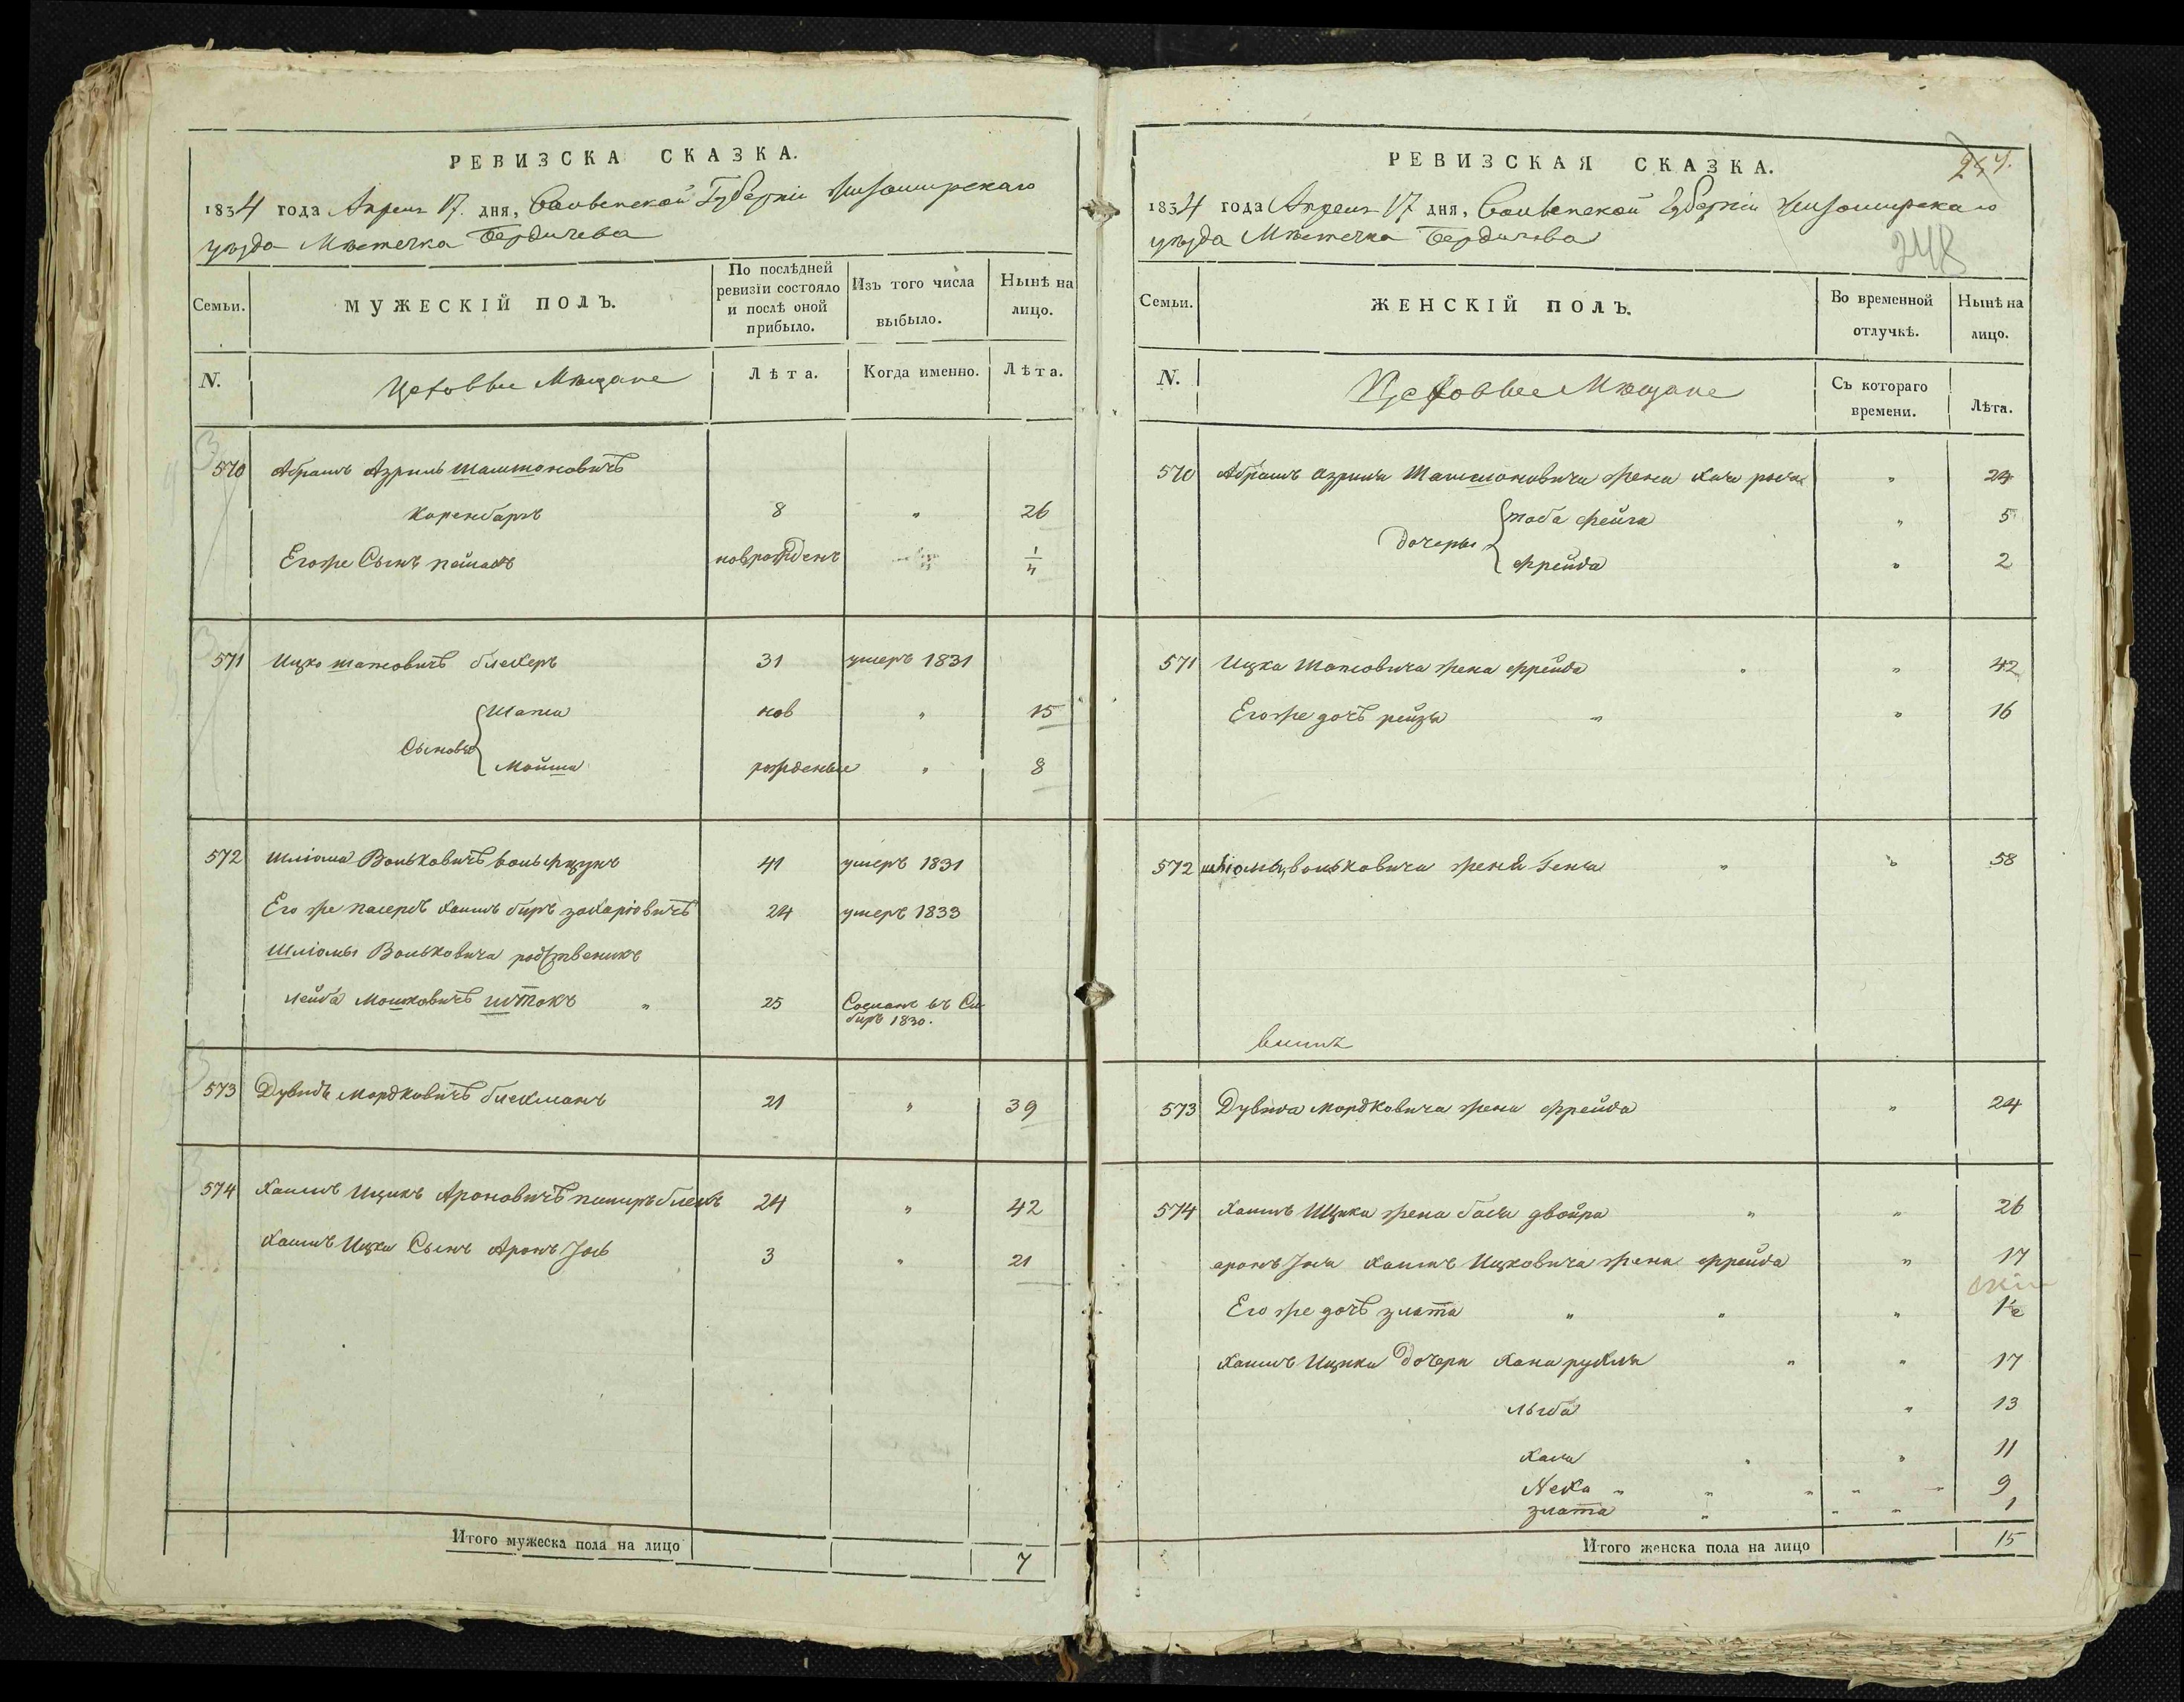 РЕВИЗСКА СКАЗКА.
1834 года Апреля 17. дня, Волынской Губерніи Житомирскаго
уѣзда Мѣстечка Бердичева
Семьи.
МУЖЕСКІЙ ПОЛЪ.
По послѣдней ревизіи состояло и послѣ оной прибыло.
Изъ того числа выбыло.
Нынѣ на лицо.
N.
Цеховые Мѣщане
Лѣта.
Когда именно.
Лѣта.
570 Абрамъ Азриль
Коренбаръ 8 " 26
Егоже Сынъ пейсахъ новорожденъ 1/4
571 Ицко шаповичъ блехеръ 31 умеръ 1831
Сыновья Шапса нов " 15
Мойша рожденые " 8
572 Шліома Вольковичъ вольфцунъ 41 умеръ 1831
Его же пасербъ хаимъ биръ захаріовичъ 24 умеръ 1833
Шліомы Вольковича родственикъ
лейба Мошковичъ штокъ " 25 Сосланъ въ Си
биръ 1830.
573 Дувидъ Мордковичъ блехманъ 21 " 39
574 Хаимъ Ицикъ Ароновичъ 24 " 42
Хаимъ Ицка Сынъ Аронъ Іосъ 3 " 21
Итого мужеска пола на лицо 7
РЕВИЗСКАЯ СКАЗКА.
248
1834 года Апреля 17 дня, Волынской Губерніи Житомирскаго
уѣзда Мѣстечка Бердичева
Семьи.
ЖЕНСКІЙ ПОЛЪ.
Во временной отлучкѣ.
Нынѣ на лицо.
N.
Цеховые Мѣщане
Съ котораго времени.
Лѣта.
570 Абрамъ азриля жена хая " 24
Дочеры тоба фейга " 5
фрейда " 2
571 Ицка Шаповича жена фрейда " " 42
Егоже дочъ рейзя " " 16
572 шліомы вольковича жена Геня " " 58
573 Дувида Мордковича жена фрейда " 24
574 Хаимъ Ицика жена бася двойра " " 26
аронъ Іося Хаимъ Ицковича жена фрейда " 17
Его же дочъ злата " " " 1½
Хаимъ Ицика Дочери хана рухля " " 17
" 13
хая " " 11
Неха " " " " " 9
злата " " " 1
Итого женска пола на лицо 15